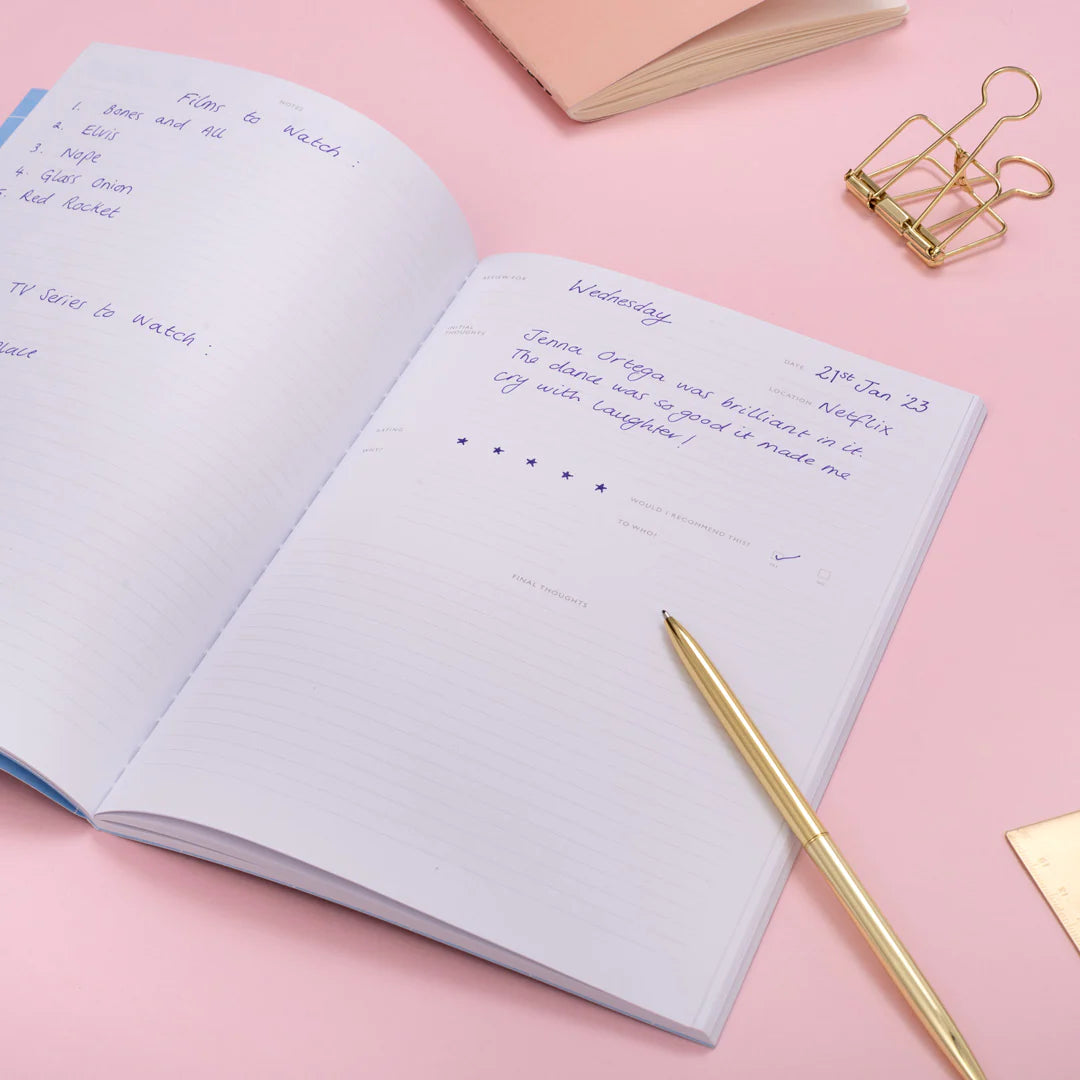 NOTES
Films to Watch :
1. Bones and All
2. Elvis
3. Nope
4. Glass Onion
5. Red Rocket
TV Series to Watch :
REVIEW FOR
Wednesday
DATE 21st Jan '23
LOCATION Netflix
INITIAL
THOUGHTS
Jenna Ortega was brilliant in it.
The dance was so good it made me
cry with laughter!
RATING
★ ★ ★ ★ ★
WHY?
WOULD I RECOMMEND THIS?
✓
YES
NO
TO WHO?
FINAL THOUGHTS